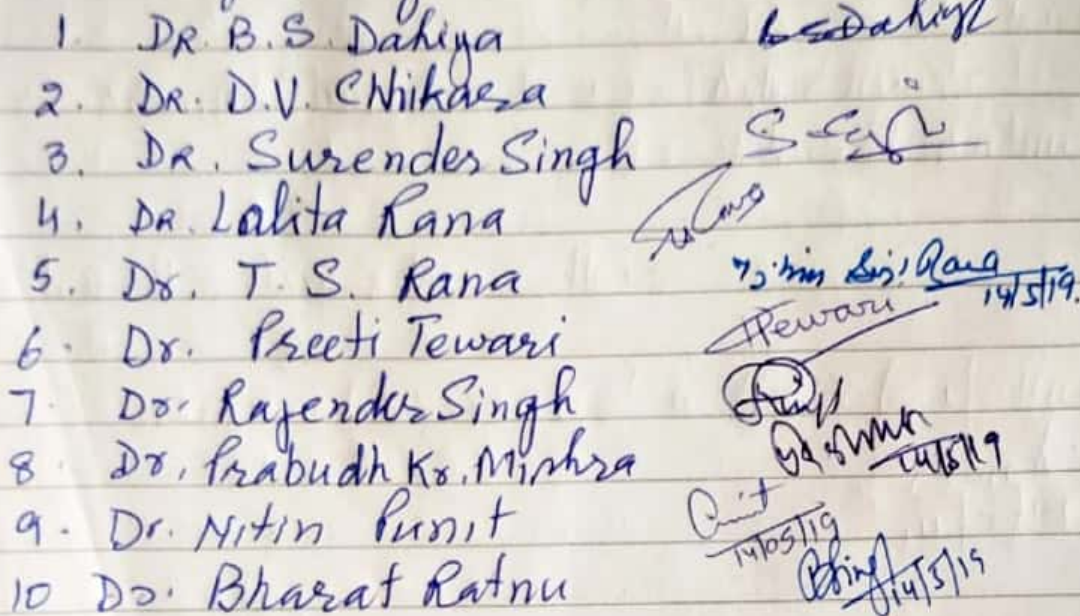 1. DR. B.S. Dahiya BSDahiya
2. DR. D.V. Chhikara
3. DR. Surender Singh
4. DR. Lalita Rana
5. Dr. T. S. Rana Rana 14/5/19.
6. Dr. Preeti Tewari Tewari
7. Dr. Rajender Singh
8. Dr. Prabudh Kr. Mishra 14/5/19
9. Dr. Nitin Punit 14/05/19
10 Dr. Bharat Ratnu 14/5/19